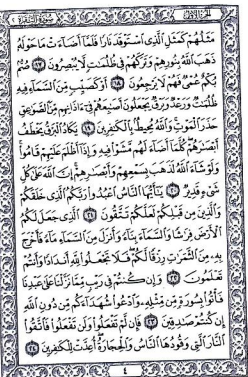 مَثَلُهُمْ كَمَثَلِ الَّذِي اسْتَوْقَدَ نَارًا فَلَمَّا أَضَاءَتْ مَا حَوْلَهُ
ذَهَبَ اللَّهُ بِنُورِهِمْ وَتَرَكَهُمْ فِي ظُلُمَاتٍ لَا يُبْصِرُونَ ١٧ صُمٌّ
بُكْمٌ عُمْيٌ فَهُمْ لَا يَرْجِعُونَ ١٨ أَوْ كَصَيِّبٍ مِنَ السَّمَاءِ فِيهِ
ظُلُمَاتٌ وَرَعْدٌ وَبَرْقٌ يَجْعَلُونَ أَصَابِعَهُمْ فِي آذَانِهِمْ مِنَ الصَّوَاعِقِ
حَذَرَ الْمَوْتِ وَاللَّهُ مُحِيطٌ بِالْكَافِرِينَ ١٩ يَكَادُ الْبَرْقُ يَخْطَفُ
أَبْصَارَهُمْ كُلَّمَا أَضَاءَ لَهُمْ مَشَوْا فِيهِ وَإِذَا أَظْلَمَ عَلَيْهِمْ قَامُوا
وَلَوْ شَاءَ اللَّهُ لَذَهَبَ بِسَمْعِهِمْ وَأَبْصَارِهِمْ إِنَّ اللَّهَ عَلَى كُلِّ
شَيْءٍ قَدِيرٌ ٢٠ يَا أَيُّهَا النَّاسُ اعْبُدُوا رَبَّكُمُ الَّذِي خَلَقَكُمْ
وَالَّذِينَ مِنْ قَبْلِكُمْ لَعَلَّكُمْ تَتَّقُونَ ٢١ الَّذِي جَعَلَ لَكُمُ
الْأَرْضَ فِرَاشًا وَالسَّمَاءَ بِنَاءً وَأَنْزَلَ مِنَ السَّمَاءِ مَاءً فَأَخْرَجَ
بِهِ مِنَ الثَّمَرَاتِ رِزْقًا لَكُمْ فَلَا تَجْعَلُوا لِلَّهِ أَنْدَادًا وَأَنْتُمْ
تَعْلَمُونَ ٢٢ وَإِنْ كُنْتُمْ فِي رَيْبٍ مِمَّا نَزَّلْنَا عَلَى عَبْدِنَا
فَأْتُوا بِسُورَةٍ مِنْ مِثْلِهِ وَادْعُوا شُهَدَاءَكُمْ مِنْ دُونِ اللَّهِ
إِنْ كُنْتُمْ صَادِقِينَ ٢٣ فَإِنْ لَمْ تَفْعَلُوا وَلَنْ تَفْعَلُوا فَاتَّقُوا
النَّارَ الَّتِي وَقُودُهَا النَّاسُ وَالْحِجَارَةُ أُعِدَّتْ لِلْكَافِرِينَ ٢٤
٤